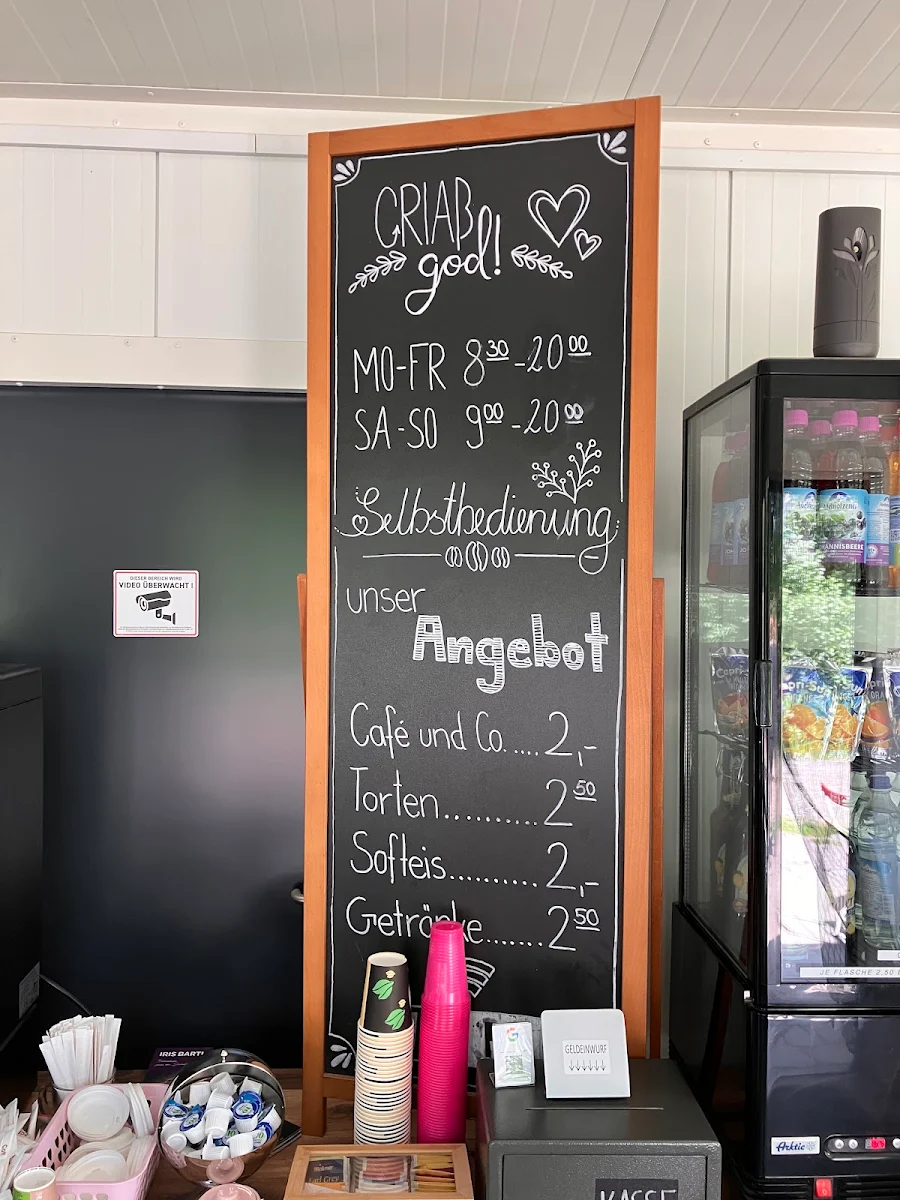 GRIAß
god!
MO-FR 8³⁰-20⁰⁰
SA-SO 9⁰⁰-20⁰⁰
Selbstbedienung
unser
Angebot
Café und Co. .... 2,-
Torten.......... 2⁵⁰
Softeis.......... 2,-
Getränke...... 2⁵⁰
DIESER BEREICH WIRD
VIDEO ÜBERWACHT !
JE FLASCHE 2,50
GELDEINWURF
KASSE
Arktic